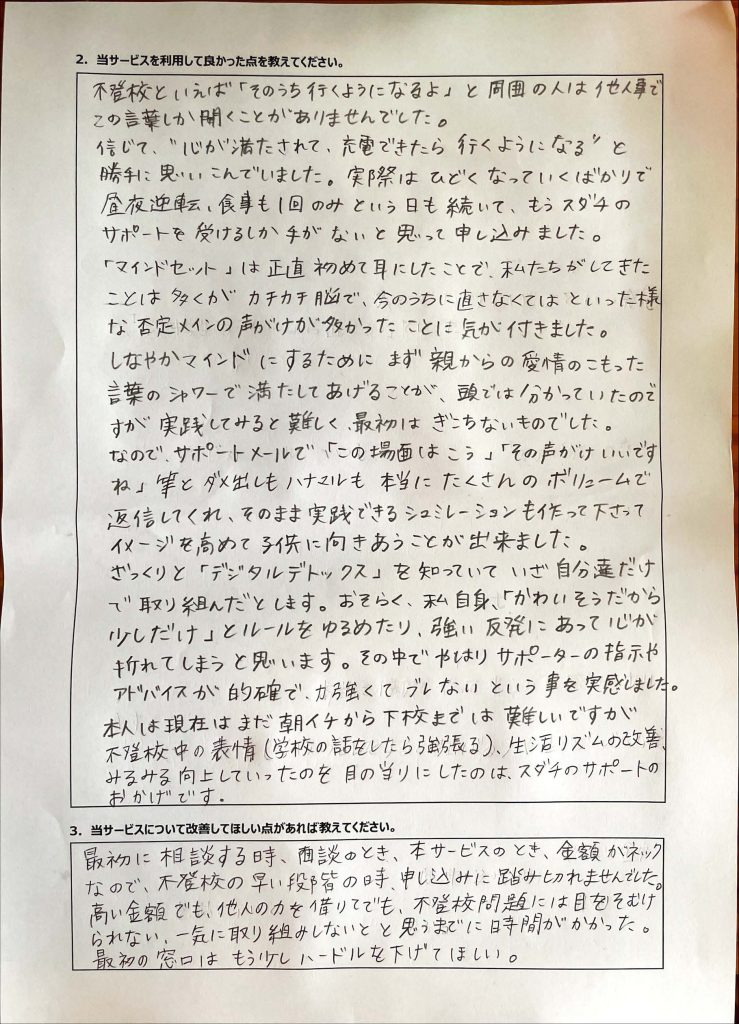 2. 当サービスを利用して良かった点を教えてください。
不登校といえば「そのうち行くようになるよ」と周囲の人は他人事で
この言葉しか聞くことがありませんでした。
信じて、“心が満たされて、充電できたら行くようになる”と
勝手に思いこんでいました。実際はひどくなっていくばかりで
昼夜逆転、食事も1回のみという日も続いて、もうスダチの
サポートを受けるしか手がないと思って申し込みました。
「マインドセット」は正直初めて耳にしたことで、私たちがしてきた
ことは多くがカチカチ脳で、今のうちに直さなくてはといった様
な否定メインの声がけが多かったことに気が付きました。
しなやかマインドにするためにまず親からの愛情のこもった
言葉のシャワーで満たしてあげることが、頭では分かっていたので
すが実践してみると難しく、最初はぎこちないものでした。
なので、サポートメールで「この場面はこう」「その声がけいいです
ね」等とダメ出しもハナマルも本当にたくさんのボリュームで
返信してくれ、そのまま実践できるシュミレーションも作って下さって
イメージを高めて子供に向きあうことが出来ました。
ざっくりと「デジタルデトックス」を知っていていざ自分達だけ
で取り組んだとします。おそらく、私自身、「かわいそうだから
少しだけ」とルールをゆるめたり、強い反発にあって心が
折れてしまうと思います。その中でやはりサポーターの指示や
アドバイスが的確で、力強くてブレないという事を実感しました。
本人は現在はまだ朝イチから下校までは難しいですが
不登校中の表情(学校の話をしたら強張る)、生活リズムの改善、
みるみる向上していったのを目の当りにしたのは、スダチのサポートの
おかげです。
3. 当サービスについて改善してほしい点があれば教えてください。
最初に相談する時、面談のとき、本サービスのとき、金額がネック
なので、不登校の早い段階の時、申し込みに踏み切れませんでした。
高い金額でも、他人の力を借りてでも、不登校問題には目をそむけ
られない、一気に取り組みしないとと思うまでに時間がかかった。
最初の窓口はもう少しハードルを下げてほしい。